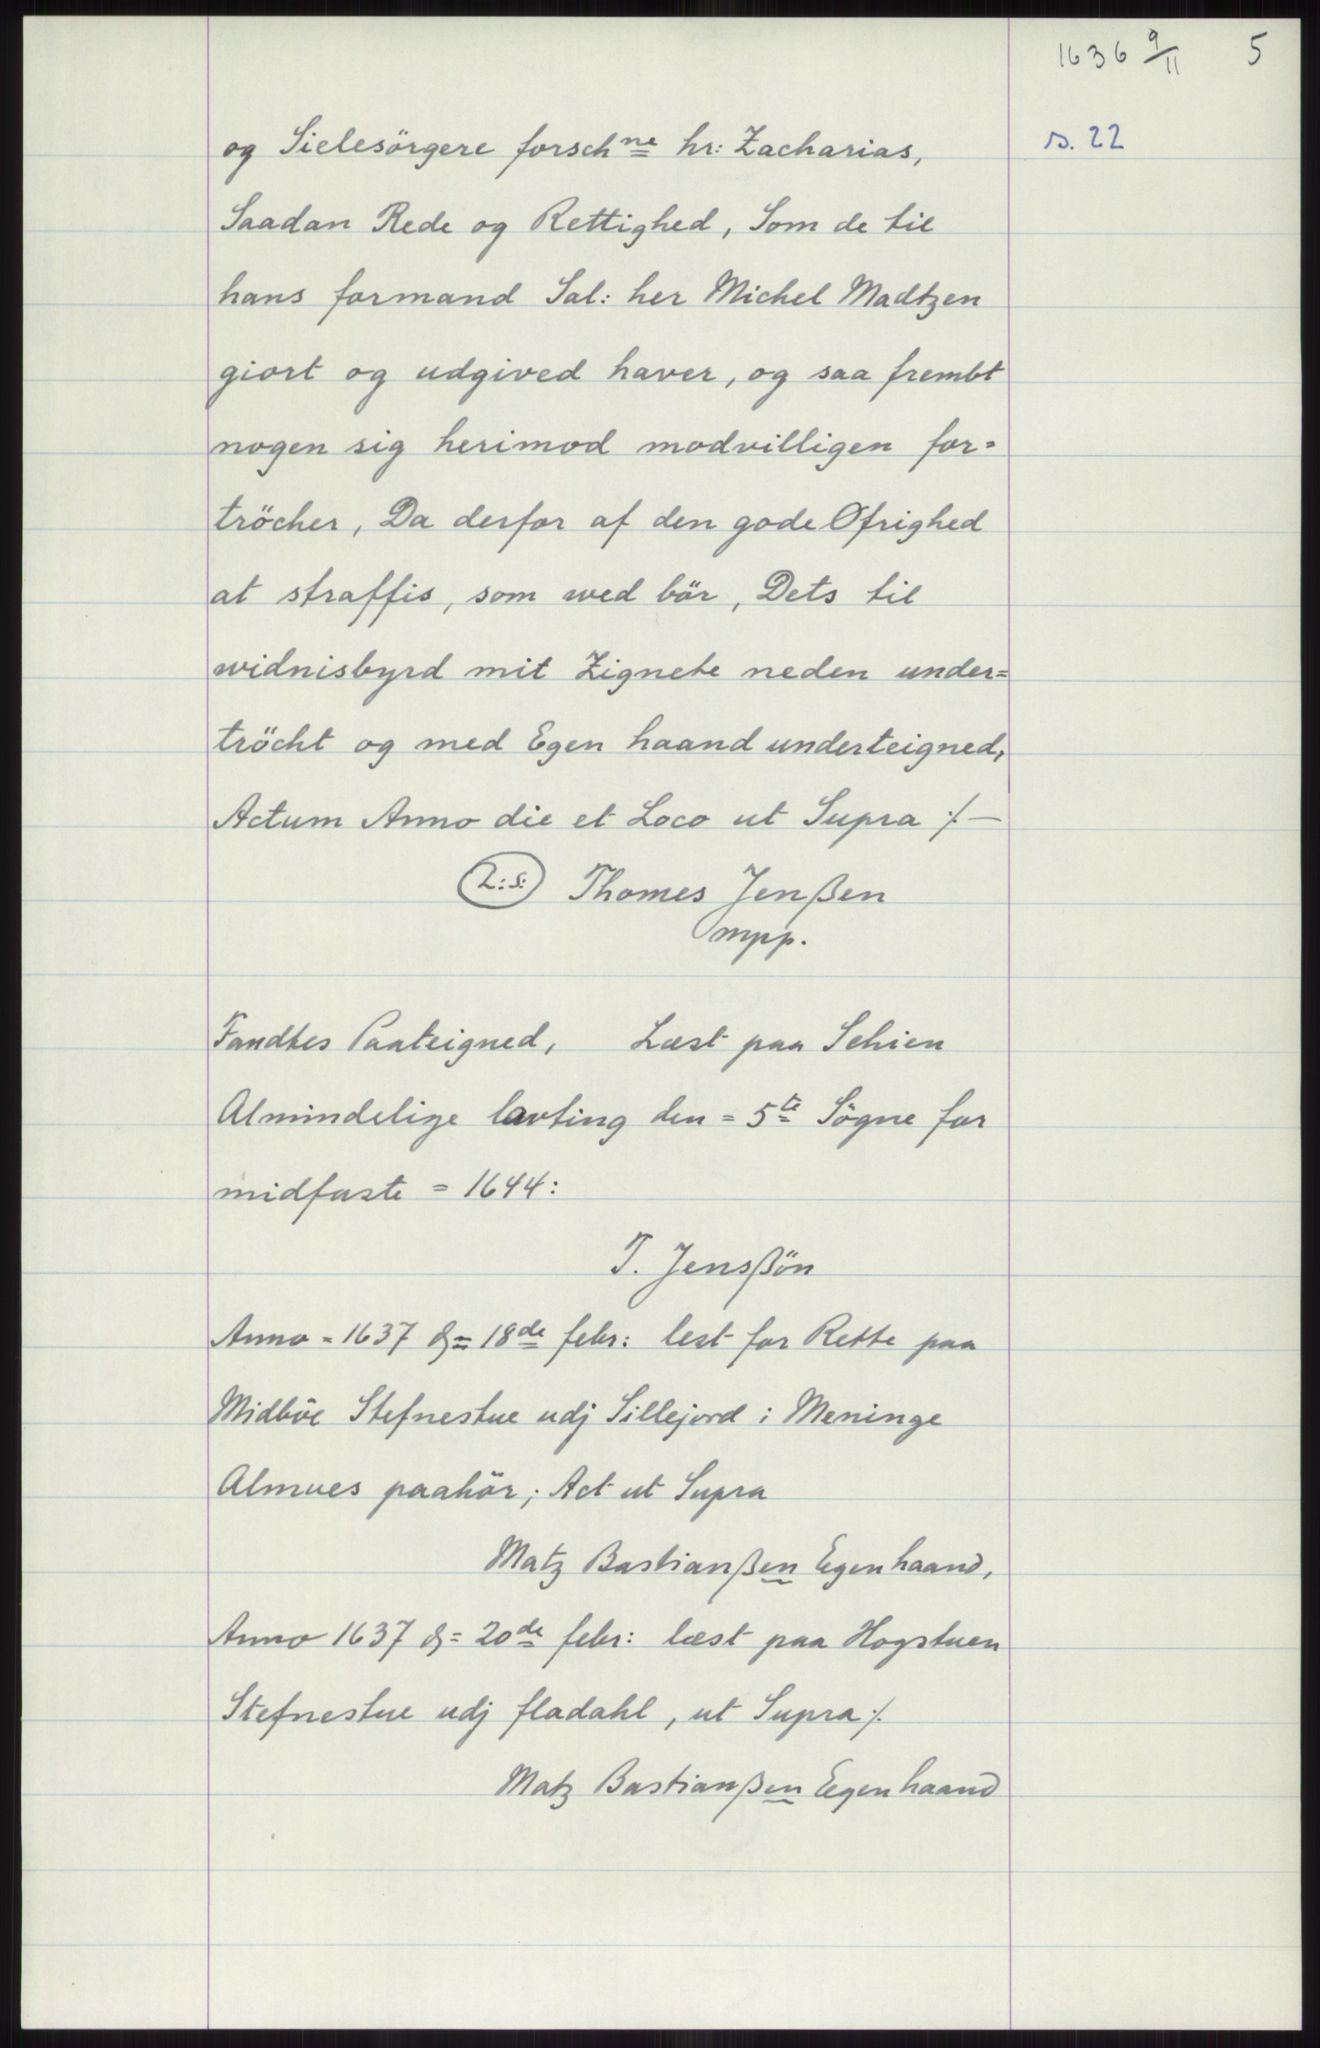 1636 9/11 5
s. 22
og Sielesörgere forschne hr: Zacharias,
Saadan Rede og Rettighed, Som de til
hans formand Sal: her Michel Madtzen
giort og udgived haver, og saa frembt
nogen sig herimod modvilligen for=
tröcher, Da derfor af den gode Øfrighed
at straffis, som wed bör, Dets til
widnisbyrd mit Zignete neden under=
tröcht og med Egen haand underteigned,
Actum Anno die et Loco ut Supra ⁒ —
L:S: Thomes Jenßen
mpp.
Fandtes Paateigned, Læst paa Schien
Almindelige lavting den = 5te Sögne for
midfaste = 1644:
T. Jensßön
Anno = 1637 d= 18de febr: lest for Rette paa
Midböe Stefnestue udj Sillejord i Meninge
Almues paahör; Act ut Supra
Matz Bastianßen Egenhaand,
Anno 1637 d= 20de febr: læst paa Hogstuen
Stefnestue udj fladahl, ut Supra ⁒
Matz Bastianßen Egenhaand